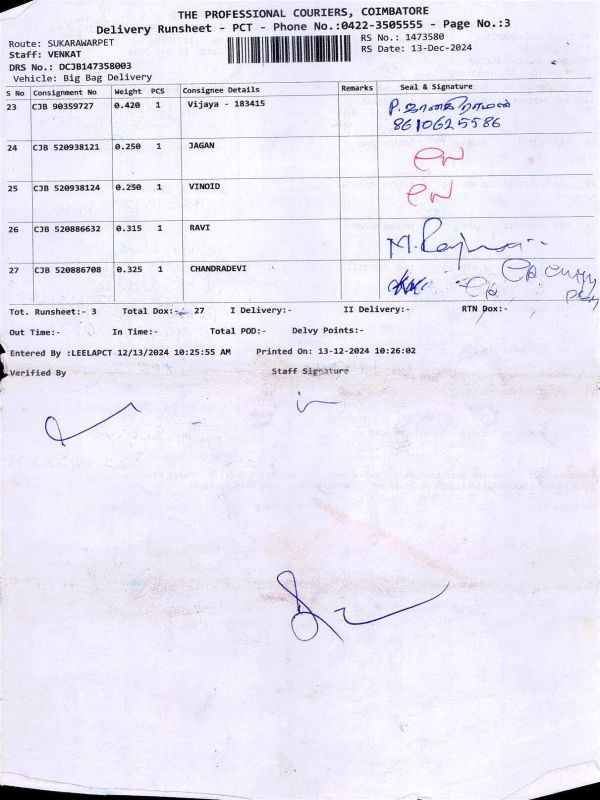 THE PROFESSIONAL COURIERS, COIMBATORE
Delivery Runsheet - PCT - Phone No.:0422-3505555 - Page No.:3
Route: SUKARAWARPET RS No.: 1473580
Staff: VENKAT RS Date: 13-Dec-2024
DRS No.: DCJB147358003
Vehicle: Big Bag Delivery
S No Consignment No Weight PCS Consignee Details Remarks Seal & Signature
23 CJB 90359727 0.420 1 Vijaya - 183415 P. ஜானகிராமன்
8610625586
24 CJB 520938121 0.250 1 JAGAN
25 CJB 520938124 0.250 1 VINOID
26 CJB 520886632 0.315 1 RAVI
27 CJB 520886708 0.325 1 CHANDRADEVI
Tot. Runsheet:- 3 Total Dox:- 27 I Delivery:- II Delivery:- RTN Dox:-
Out Time:- In Time:- Total POD:- Delvy Points:-
Entered By :LEELAPCT 12/13/2024 10:25:55 AM Printed On: 13-12-2024 10:26:02
Verified By Staff Signature